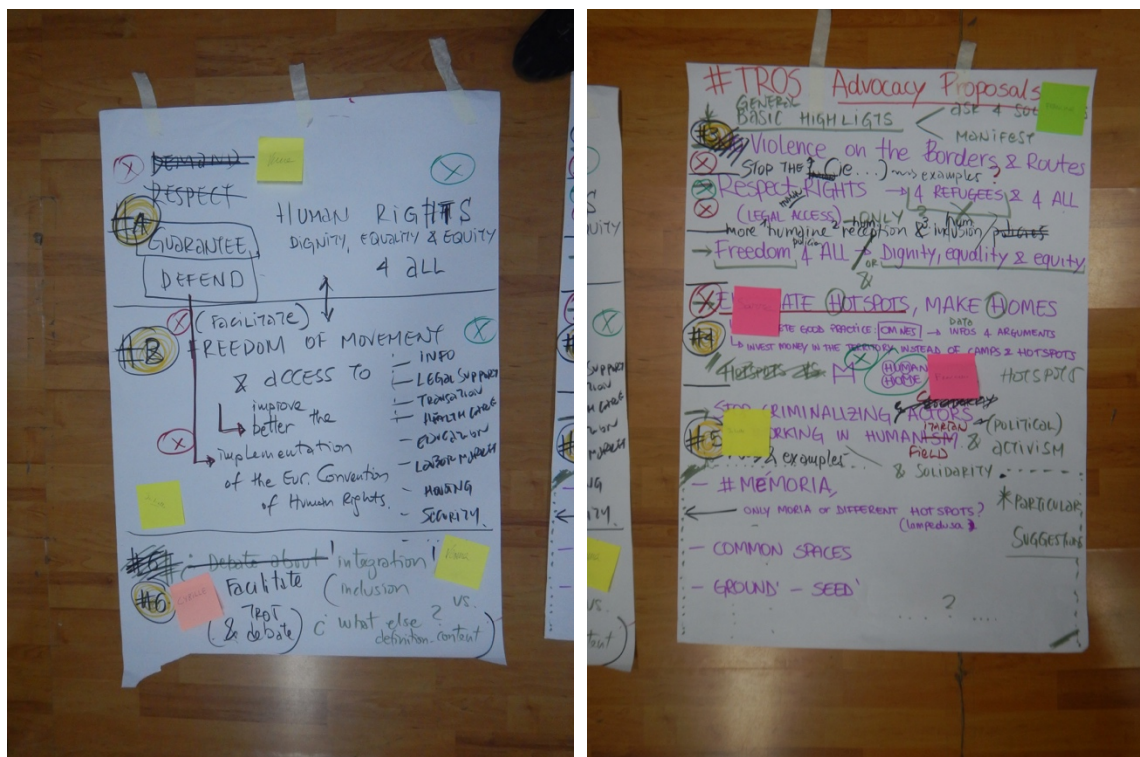 DEMAND
RESPECT
#A
GUARANTEE,
DEFEND
HUMAN RIGHTS
DIGNITY, EQUALITY & EQUITY
4 ALL
#B
(FACILITATE)
FREEDOM OF MOVEMENT
& ACCESS TO
- INFO
- LEGAL SUPPORT
- HEALTH CARE
- EDUCATION
- HOUSING
- SECURITY.
improve
better the
implementation
of the Eur. Convention
of Human Rights.
Debate about 'integration'
#6
Facilitate
(inclusion
vs.
& debate)
what else?
definition-content)
#TROS Advocacy Proposals
GENERAL
BASIC HIGHLIGTS
MANIFEST
Violence on the Borders & Routes
STOP THE
examples?
Respect RIGHTS → 4 REFUGEES & 4 ALL
(LEGAL ACCESS) ONLY
more humaine reception & inclusion policies
→ Freedom 4 ALL → Dignity, equality & equity
OR
&
HOTSPOTS, MAKE HOMES
#4
GOOD PRACTICE OMNES → DATA INFOS 4 ARGUMENTS
INVEST MONEY IN THE TERRITORY INSTEAD OF CAMPS & HOTSPOTS
HOTSPOTS
HUMAN
HOME
HOTSPOTS
CRIMINALIZING ACTORS
#5
WORKING IN HUMANISM
ITARIAN
FIELD
(POLITICAL)
& ACTIVISM
& examples
& SOLIDARITY
- #MEMORIA,
ONLY MORIA or DIFFERENT HOTSPOTS?
(Lampedusa)
* PARTICULAR
SUGGESTIONS
- COMMON SPACES
- GROUND' - SEED'
?